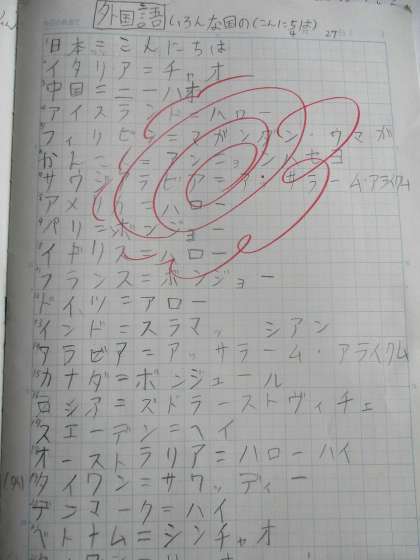 外国語 いろんな国の(こんにちは)
1 日本=こんにちは
2 イタリア=チャオ
3 中国=ニーハオ
4 アイスランド=ハロー
5 フィリピン=マガンダン・ウマガ
6 かんこく=アンニョンハセヨ
7 サウジアラビア=ア・サラーム・アライクム
8 アメリカ=ハロー
9 パリ=ボンジョー
10 イギリス=ハロー
11 フランス=ボンジョー
12 ドイツ=アロー
13 インド=スラマッ シアン
14 アラビア=アッサラーム・アライクム
15 カナダ=ボンジュール
16 ロシア=ズドラーストヴィチェ
17 スエーデン=ヘイ
18 オーストラリア=ハローハイ
19 タイワン=サワッディー
20 デンマーク=ハイ
21 ベトナム=シンチャオ